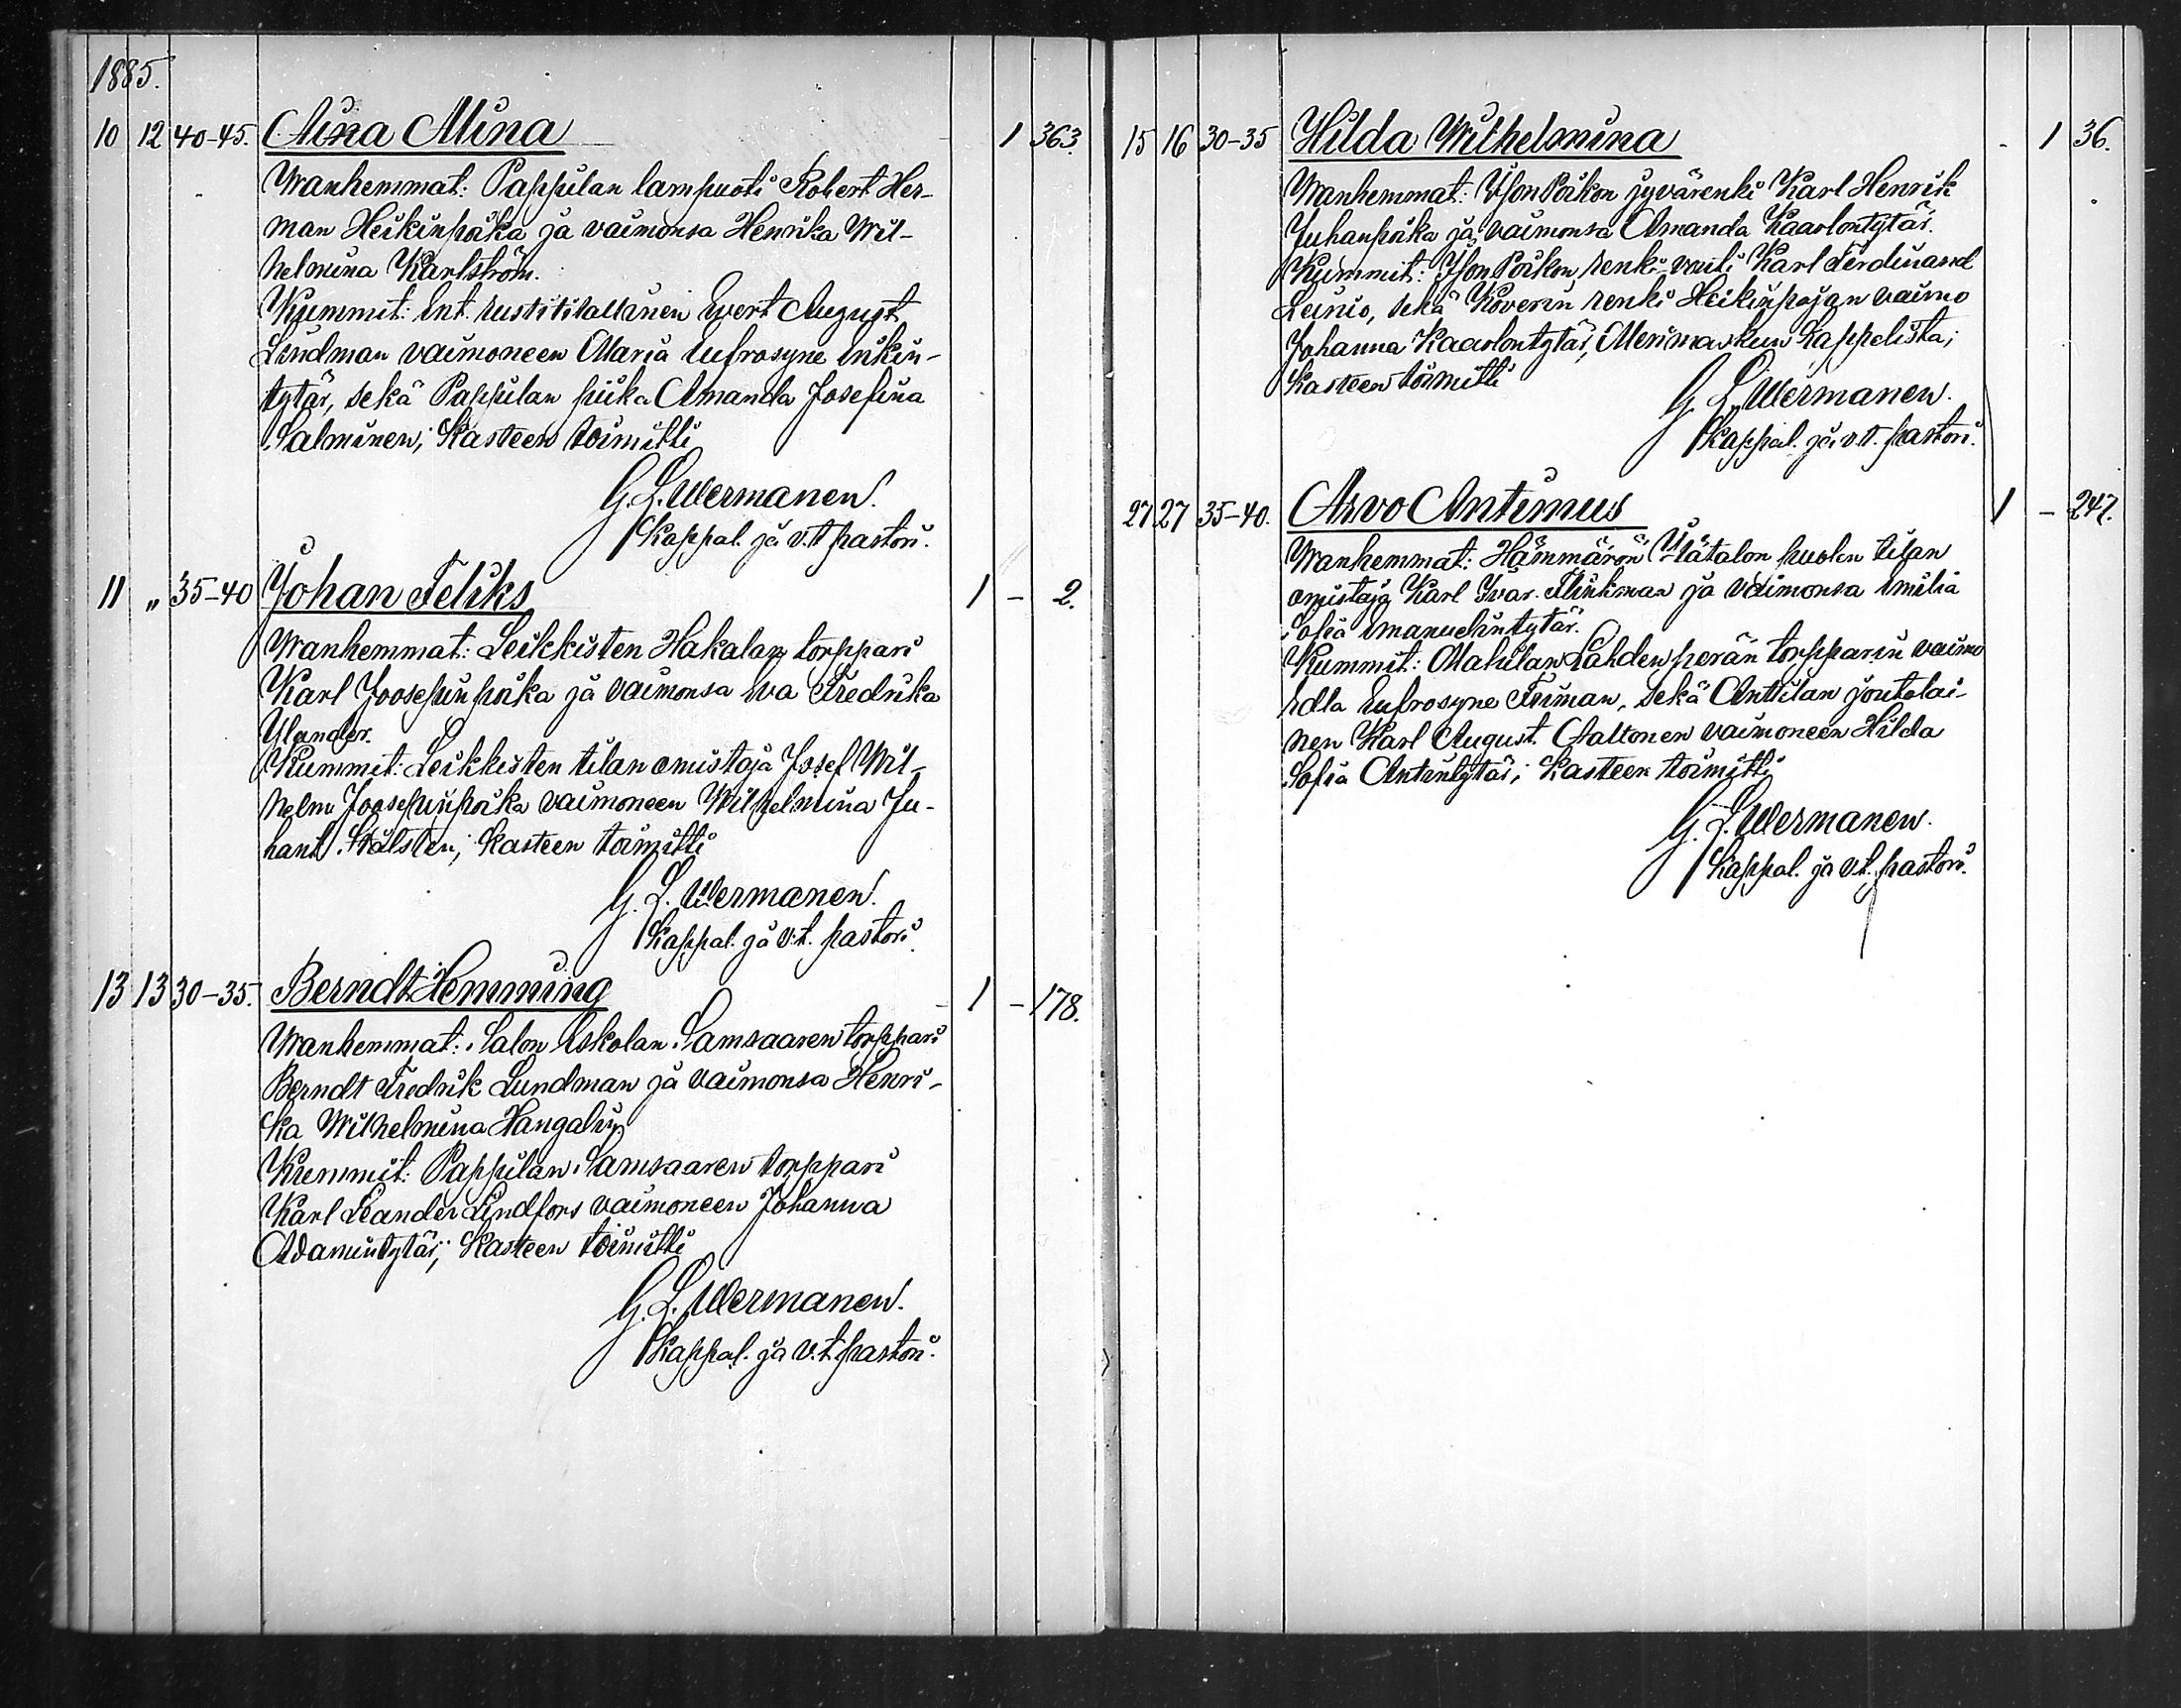 1885.
10 12 40-45. Aina Mina 1 363.
Wanhemmat: Pappilan lampuoti Robert Her-
man Heikinpoika ja vaimonsa Henrika Wil-
helmina Karlström.
Kummit: Ent. rustitilallinen Evert August
Lindman vaimoneen Maria Eufrosyne Erikin-
tytär, sekä Pappilan piika Amanda Josefina
Salminen; Kasteen toimitti
G. L. Wermanen.
Kappal. ja v.t pastori.
11 „ 35-40 Johan Feliks 1 - 2.
Wanhemmat: Leikkisten Hakalan torppari
Karl Joosepinpoika ja vaimonsa Eva Fredrika
Ylander.
Kummit: Leikkisten tilan omistaja Josef Wil-
helm Joosepinpoika vaimoneen Wilhelmina Ju-
hant. Stålsten; Kasteen toimitti
G. L. Wermanen.
Kappal. ja v.t. pastori
13 13 30-35. Berndt Hemming 1 - 178.
Wanhemmat: Salon Eskolan Samsaaren torppari
Berndt Fredrik Lundman ja vaimonsa Henri-
ka Wilhelmina
Kummit: Pappilan Samsaaren torppari
Karl Leander Lindfors vaimoneen Johanna
Adamintytär; Kasteen toimitti
G. L. Wermanen.
Kappal. ja v.t. pastori.
15 16 30-35 Hilda Wilhelmina - 1 36.
Wanhemmat: Ison Poikon jyvärenki Karl Henrik
Juhanpoika ja vaimonsa Amanda Kaarlontytär.
Kummit: Ison Poikon renki-vouti Karl Ferdinand
Leinio, sekä Koverin renki Heikinpojan vaimo
Johanna Kaarlontytär, Merimaskun Kappelista;
Kasteen toimitti
G. L. Wermanen.
Kappal. ja v.t. pastori.
27 27 35-40. Arvo Antimus 1 - 247.
Wanhemmat: Hämmärön Ylätalon puolen tilan
omistaja Karl Ivar Flinkman ja vaimonsa Emilia
Sofia Emanuelintytär.
Kummit: Mahilan Lahdenperän torpparin vaimo
Edla Eufrosyne Friman, sekä Anttilan joutolai-
nen Karl August Aaltonen vaimoneen Hilda
Sofia Antintytär; Kasteen toimitti
G. L. Wermanen.
Kappal. ja v.t. pastori.